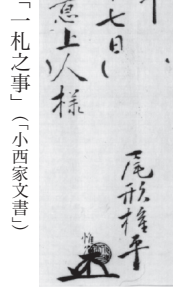 十七日
恵上人様
尾形権平
惟
「一札之事」(「小西家文書」)